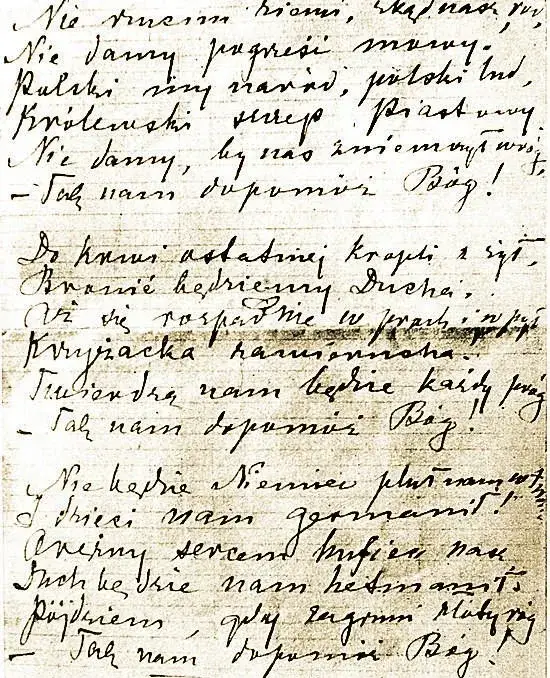 Nie rzucim ziemi, skąd nasz ród,
Nie damy pogrześć mowy.
Polski my naród, polski lud,
Królewski szczep Piastowy
Nie damy, by nas zniemczył wróg,
– Tak nam dopomóż Bóg!
Do krwi ostatniej kropli z żył,
Bronić będziemy Ducha,
Aż się rozpadnie w proch i w pył
Krzyżacka zawierucha.
Twierdzą nam będzie każdy próg
– Tak nam dopomóż Bóg!
Nie będzie Niemiec pluł nam w twarz
I dzieci nam germanił!
Orężny sercem hufiec nasz
Duch będzie nam hetmanił.
Pójdziem, gdy zagrzmi złoty róg
– Tak nam dopomóż Bóg!